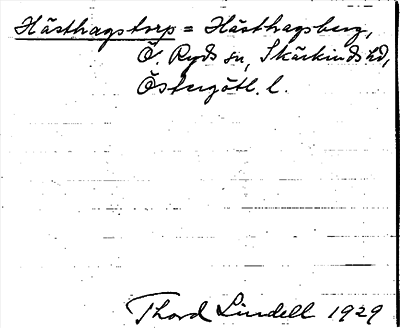 Hästhagstorp = Hästhagsberg,
Ö. Ryds sn, Skärkinds hd,
Östergötl. l.
Thord Lindell 1929